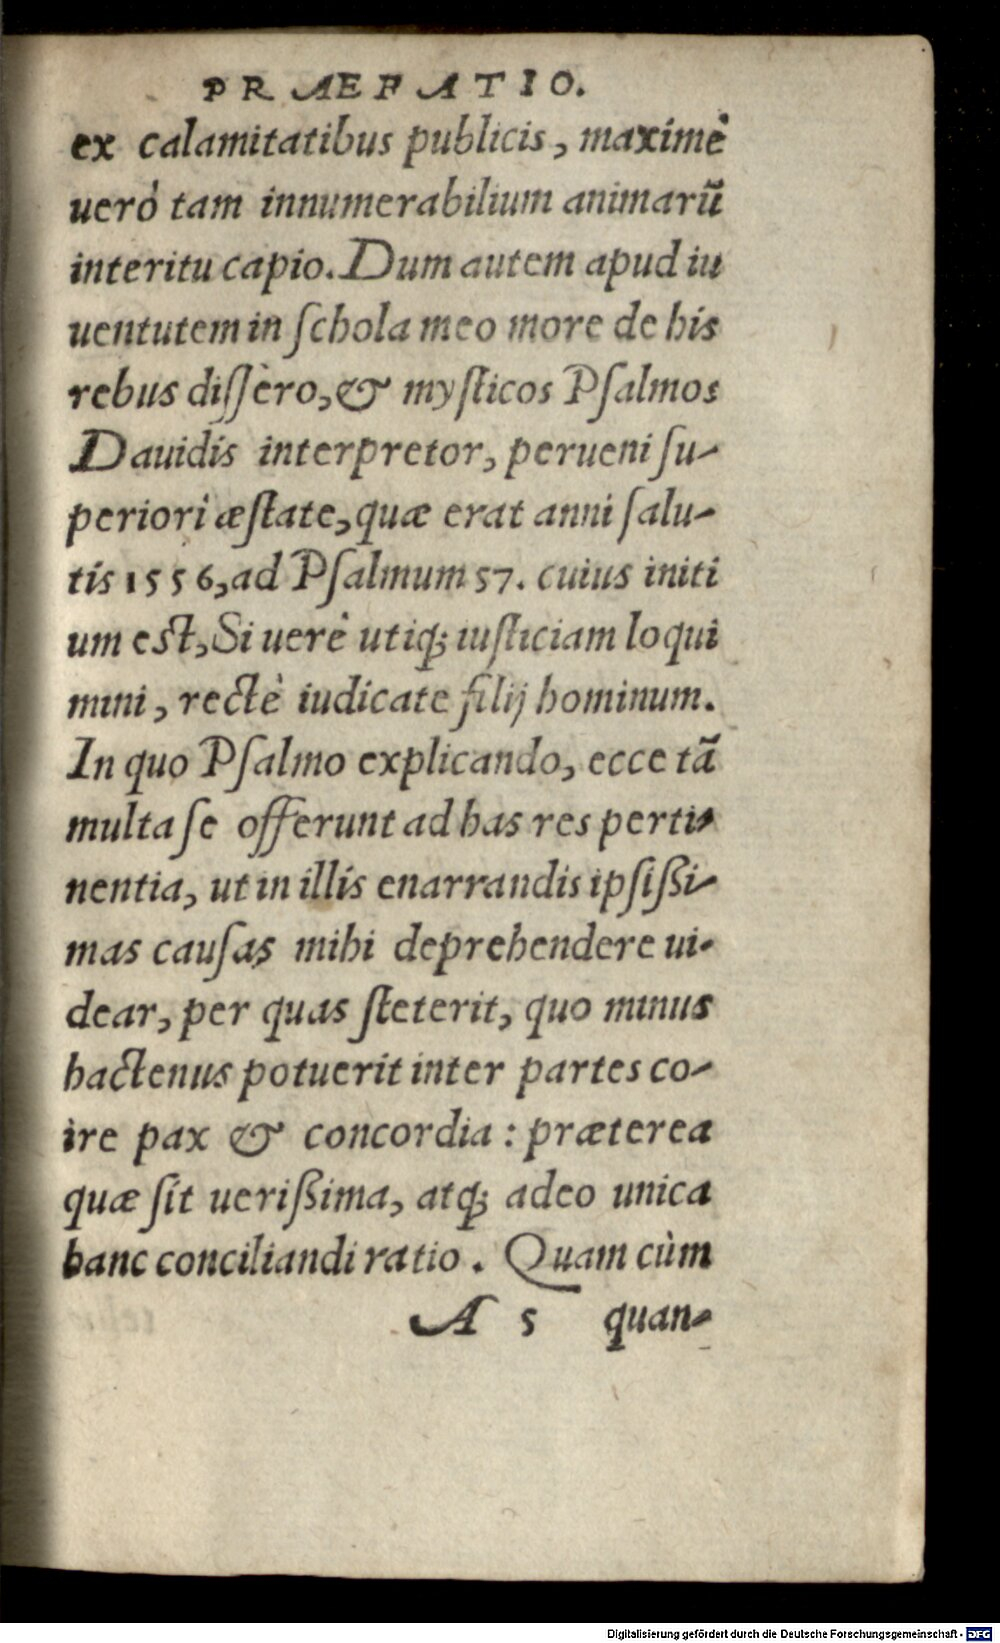 PRAEFATIO.
ex calamitatibus publicis, maximè
uerò tam innumerabilium animarũ
interitu capio. Dum autem apud iu
uentutem in ſchola meo more de his
rebus diſſero, & myſticos Pſalmos
Dauidis interpretor, perueni ſu-
periori æſtate, quæ erat anni ſalu-
tis 1556, ad Pſalmum 57. cuius initi
um eſt, Si uerè utiq; iuſticiam loqui
mini, rectè iudicate filij hominum.
In quo Pſalmo explicando, ecce tã
multa ſe offerunt ad has res perti-
nentia, ut in illis enarrandis ipſißi-
mas cauſas mihi deprehendere ui-
dear, per quas ſteterit, quo minus
hactenus potuerit inter partes co-
ire pax & concordia : præterea
quæ ſit uerißima, atq; adeo unica
hanc conciliandi ratio. Quam cùm
A 5 quan-
Digitalisierung gefördert durch die Deutsche Forschungsgemeinschaft - DFG